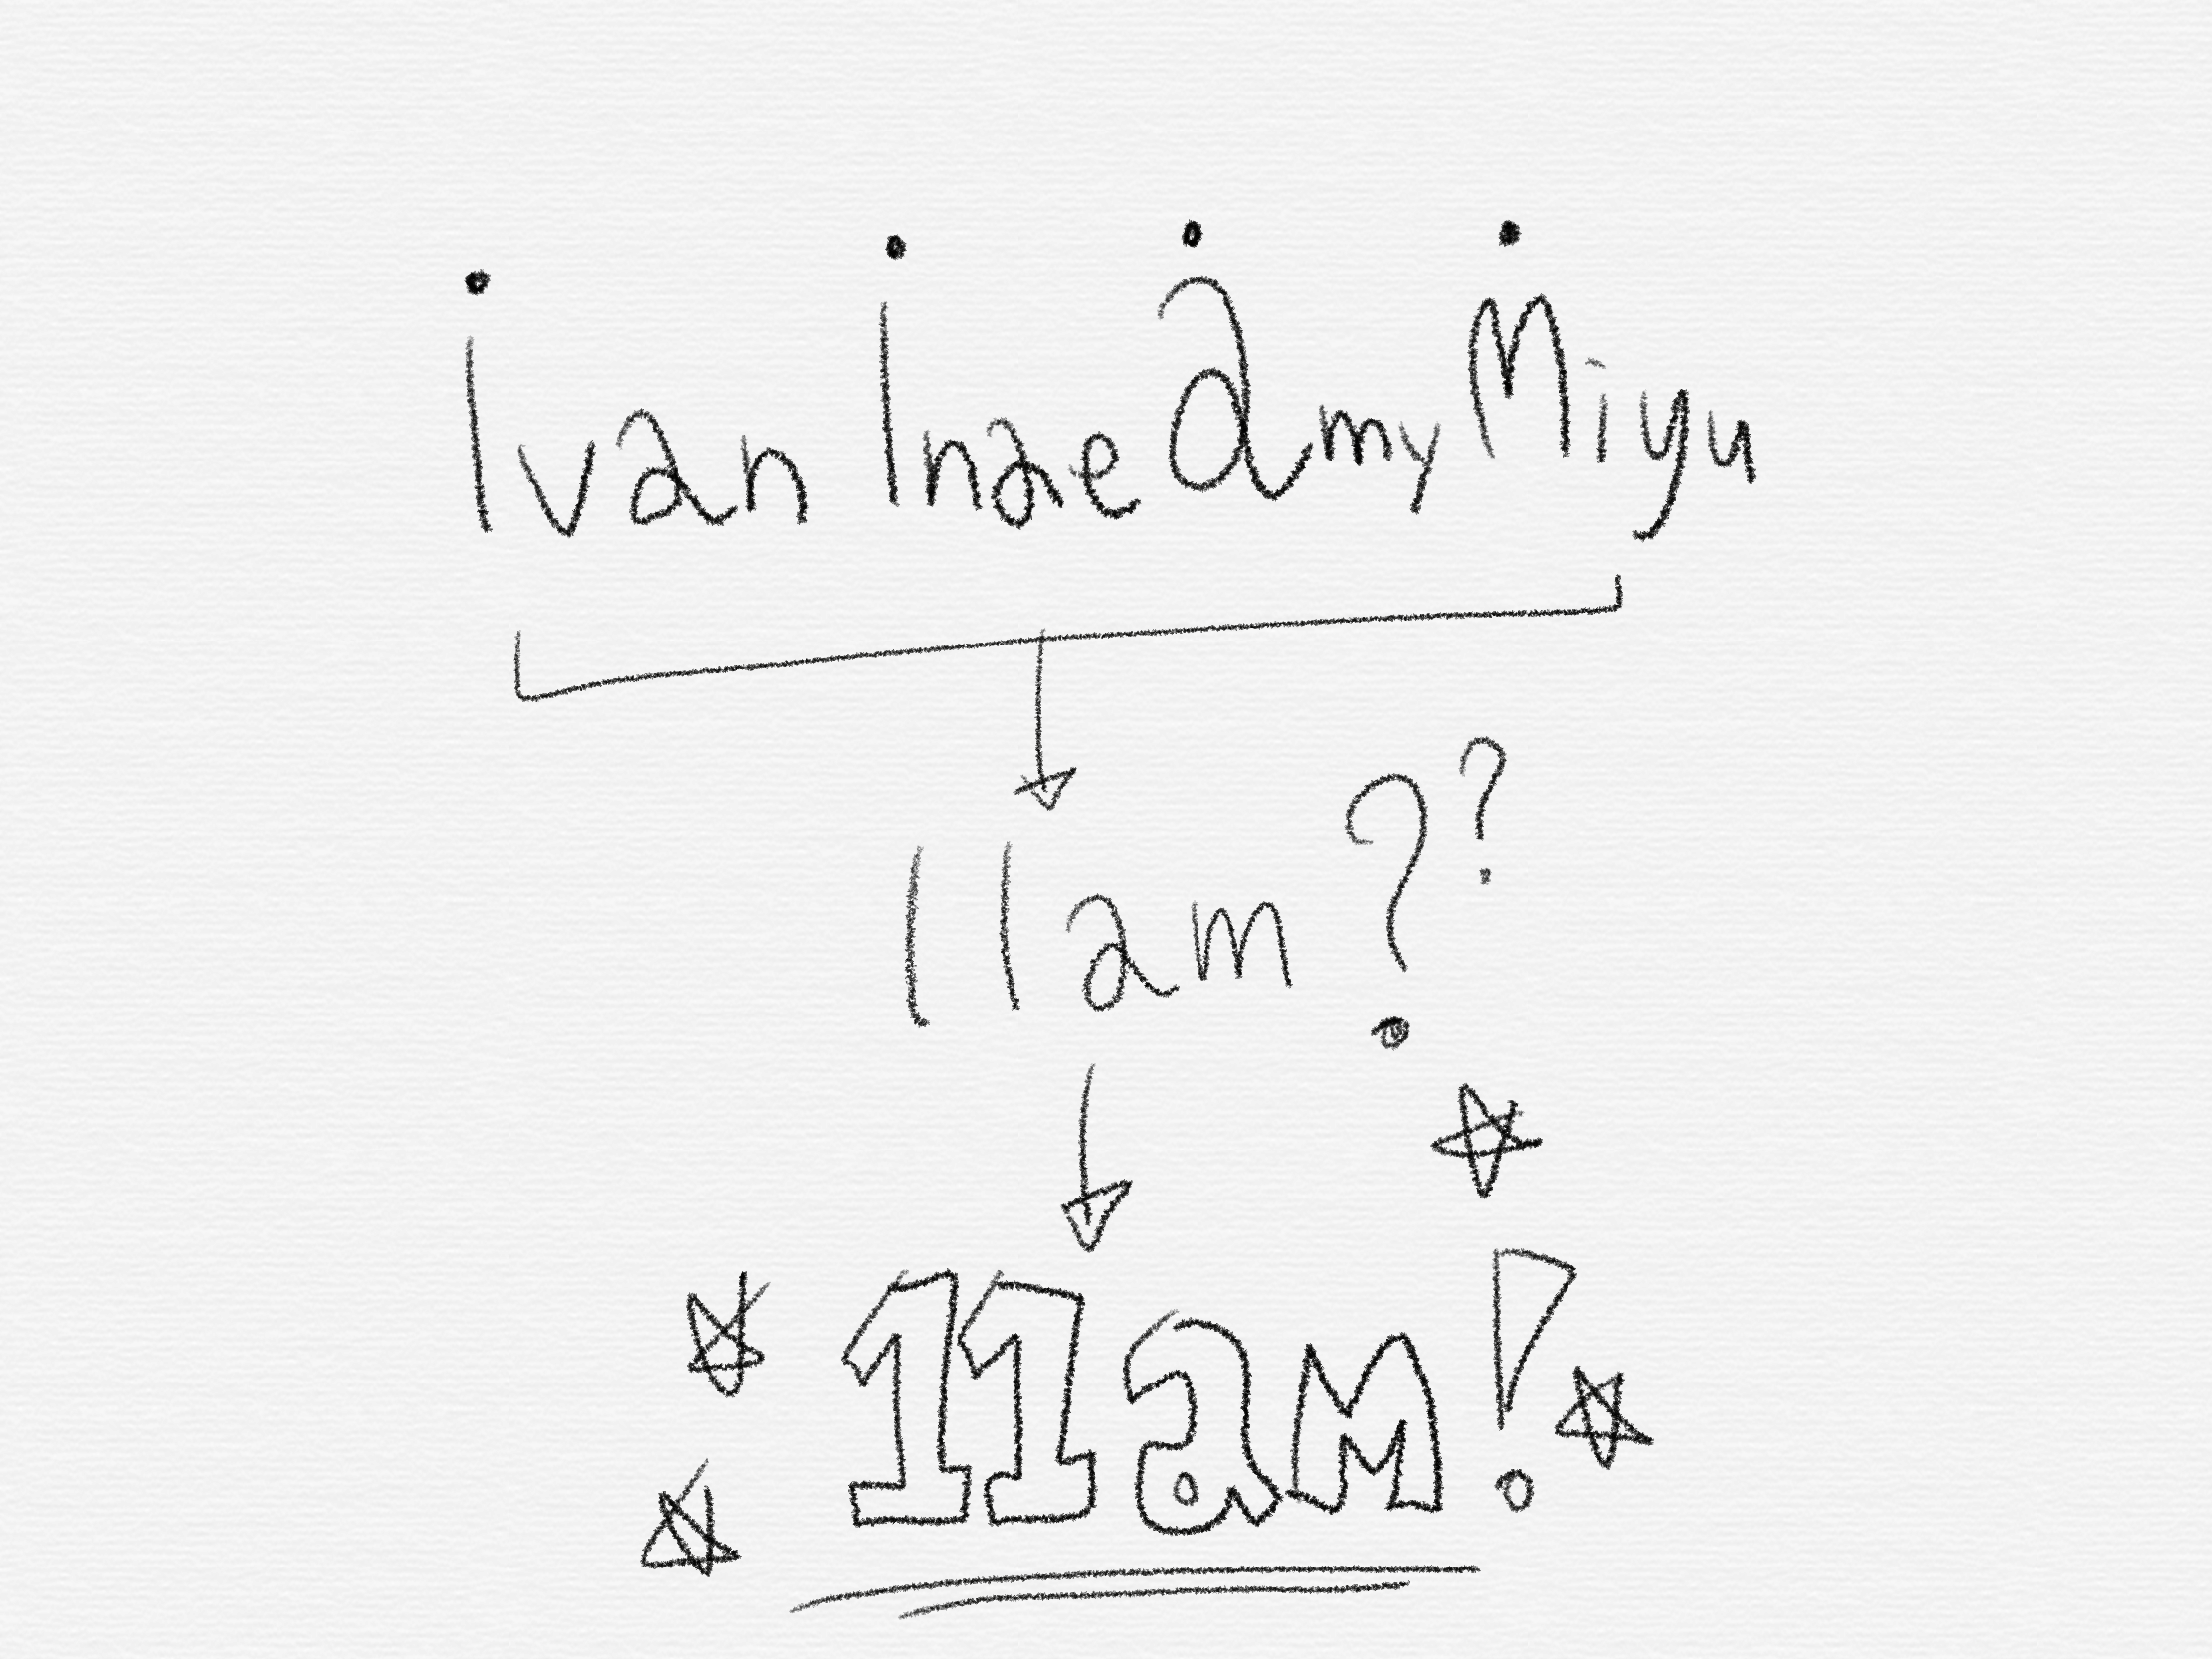 Ivan Inae amy Miyu
11am??
11am!